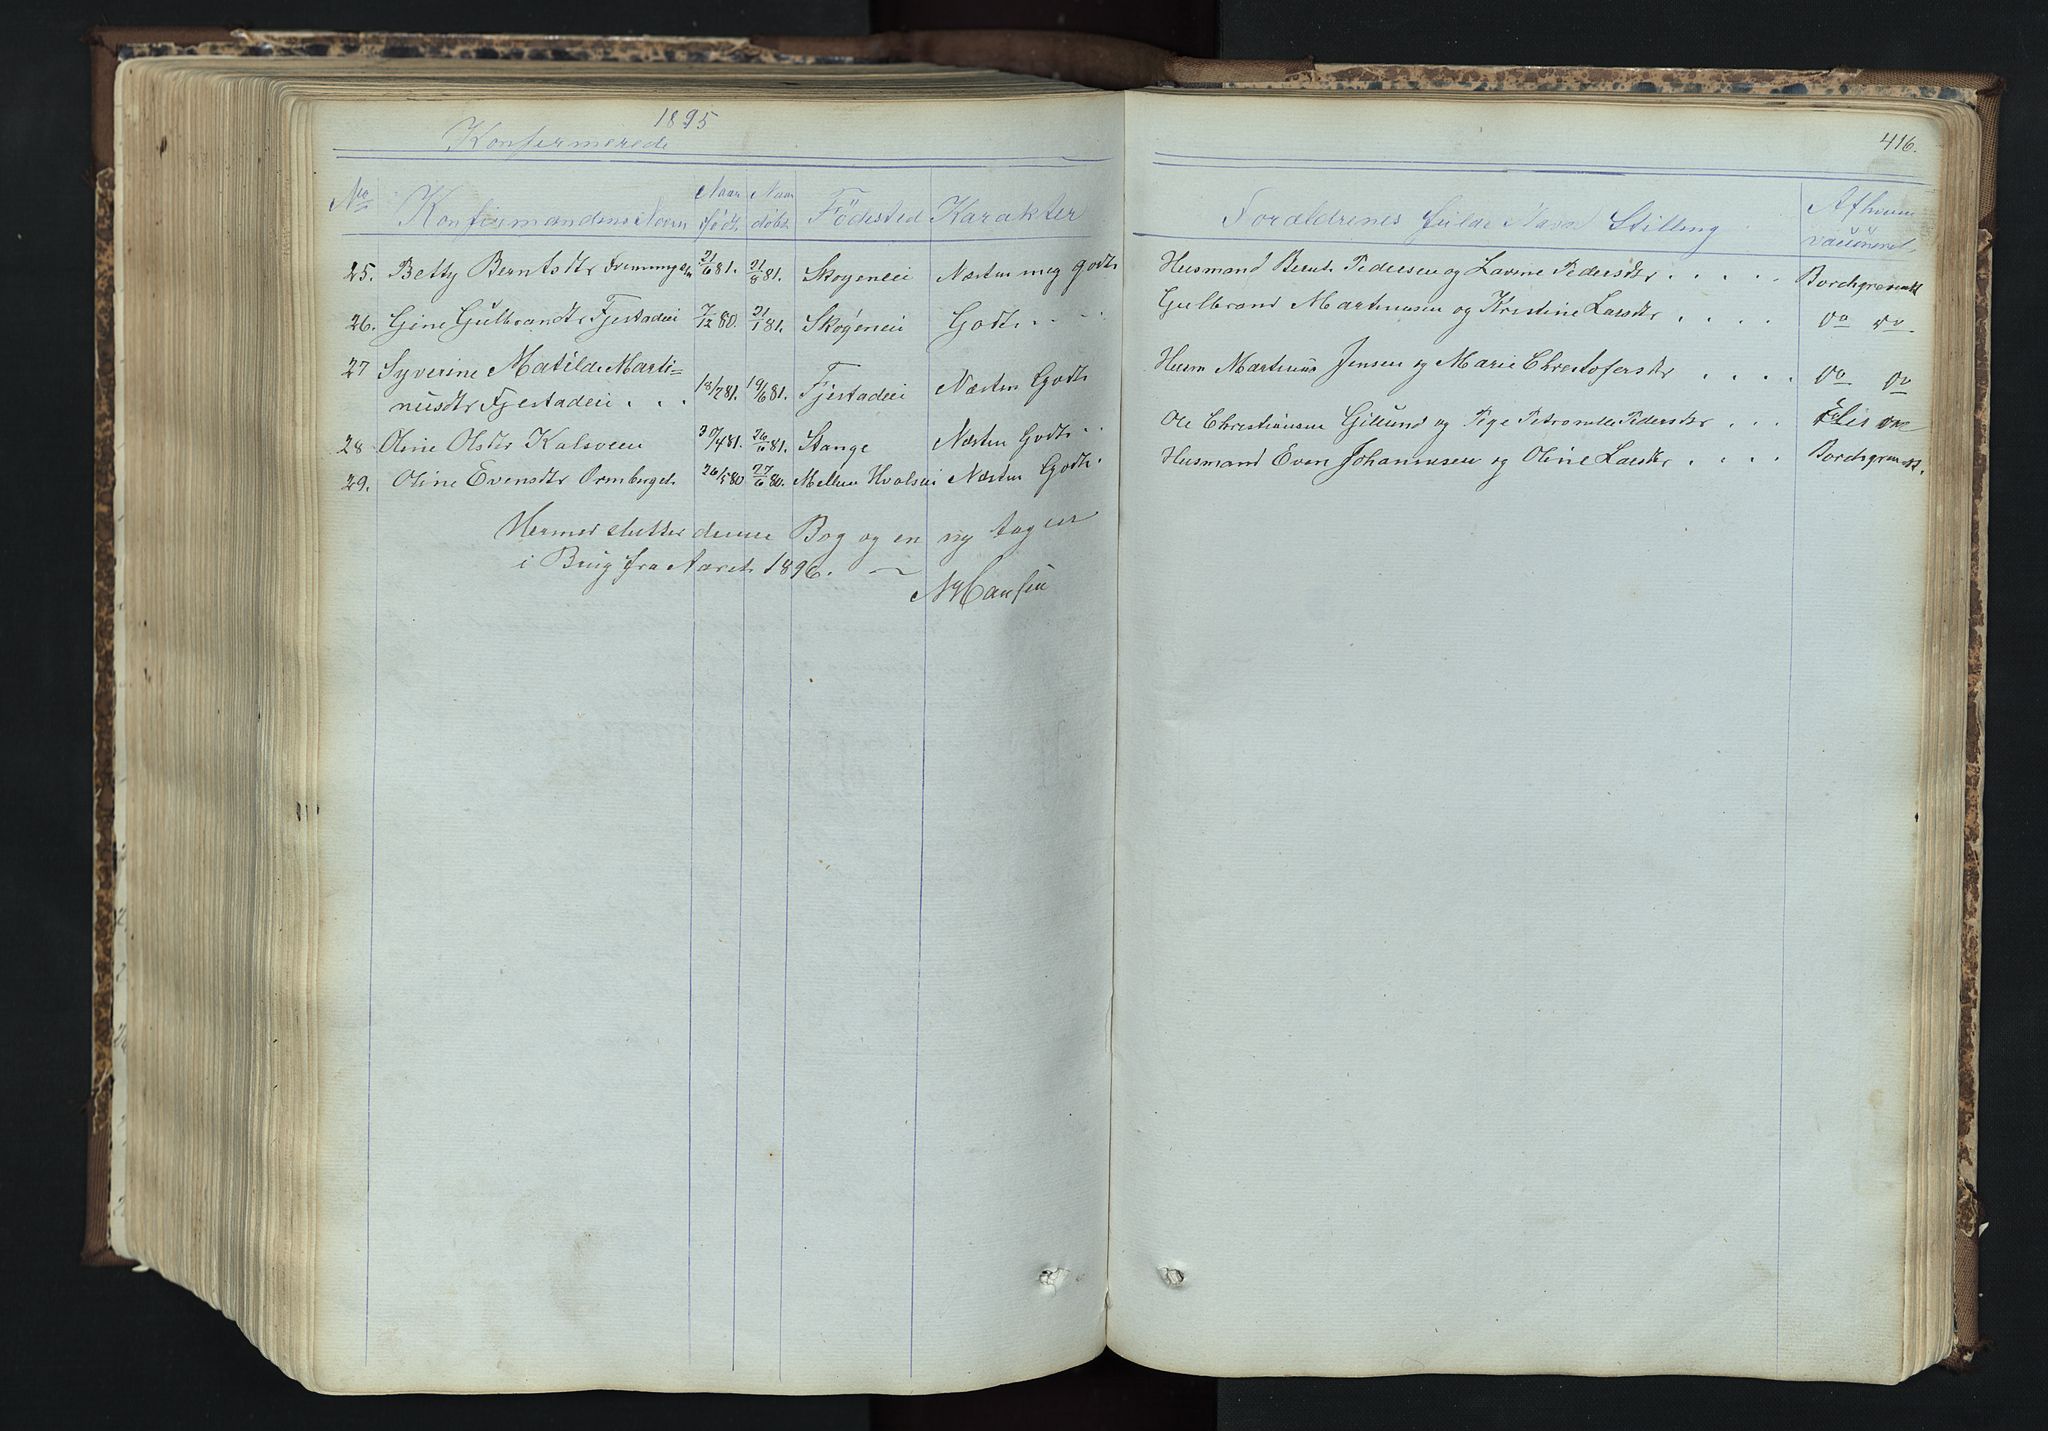 1895
Konfirmerede
416.
No Konfirmandens Navn Naar født Naar döbt Födested Karakter
Foræeldrenes fulde Navn Stilling
25. Betty Berntsdtr 21/6 81. 21/8 81. Skogeneie Næsten meg godt
Husmand Bernt Pedersen og Lovine Pedersdtr . . . . .
26. Gine Gulbrandsdtr Fjestadeie 7/12 80. 21/1 81. Skogeneie Godt
Gulbrand Martinusen og Kristine Larsdtr . . . . Do Do
27 Syverine Matilde Marti=
nusdtr Fjestadeie . . . 18/2 81. 19/6 81. Fjestadeie Næsten Godt
Husm Martinus Jensen og Marie Christofersdtr . . . . Do Do
28 Oline Olsdtr Kalsveen 30/4 81. 26/6 81. Stange Næsten Godt
Ole Christiansen Gillund og Pige Petronelle Pedersdtr . . .
29. Oline Evensdtr Ormberget 26/5 80 27/6 80. Mellem Hvalseie Næsten Godt.
Husmand Even Johannesen og Oline Larsdtr . . . .
Hermed slutter denne Bog og en ny tages
i Brug fra Aaret 1896.
N Hansen